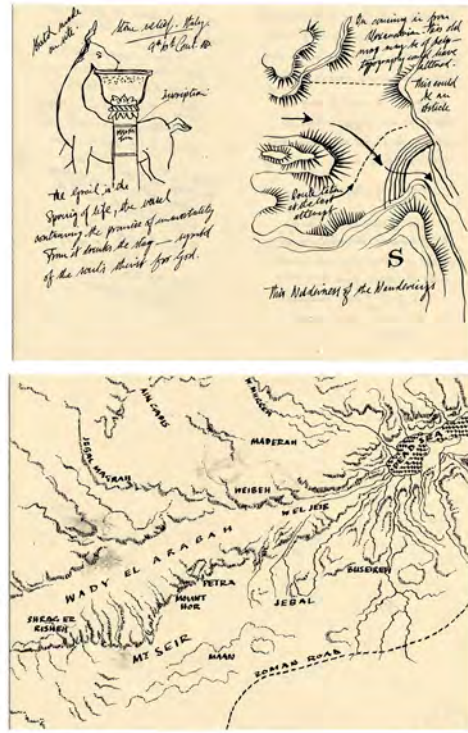 Sketch made
on site.
Stone relief. Italy
9th
Inscription
The Grail is the
Spring of life, the vessel
containing the promise of immortality
From it drinks the stag — symbol
of the soul's thirst for God.
In coming in from
Alexandria this old
map may be of help —
topography could have
altered.
This could
be an
obstacle
is the last
attempt
S
This Wilderness of the Wanderings
AIN GADIS
JEBAL MAFRAH
MADERAH
DEAD SEA
WEIBEH
W EL JEIB
WADY EL ARABAH
BUSEIREH
PETRA
MOUNT
HOR
JEBAL
SHRAG ER
RISHEH
MT SEIR
MAAN
ROMAN ROAD